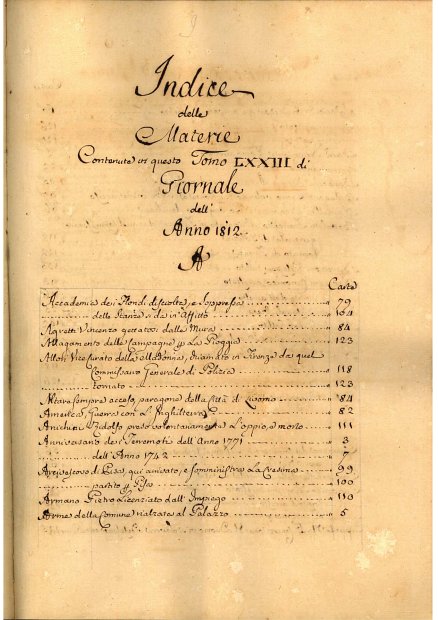 Indice
delle
Materie
Contenute in questo Tomo LXXIII di
Giornale
dell'
Anno 1812
A
Carte
Accademia dei Floridi disciolta, e soppressa 79
delle Stanze si dà in Affitto 164
Agretti Vincenzo gettatosi dalle Mura 84
Allagamento delle Campagne p La Pioggia 123
Vicecurato della Madonna, chiamato in Firenze da quel
Commissario Generale di Polizia 118
tornato 123
Altare sempre acceso, paragone della Città di Livorno 84
America, Guerra con L'Inghilterra 82
Anichini Ridolfo prese volontariamente L'oppio, e morto 111
Anniversario dei Terremoti dell'Anno 1771 3
dell'Anno 1742 7
Arcivescovo di Pisa, qui arrivato, e somministra La Cresima 99
partito p Pisa 100
Armano Pietro Licenziato dall'Impiego 110
Arme della Comune rialzata al Palazzo 5